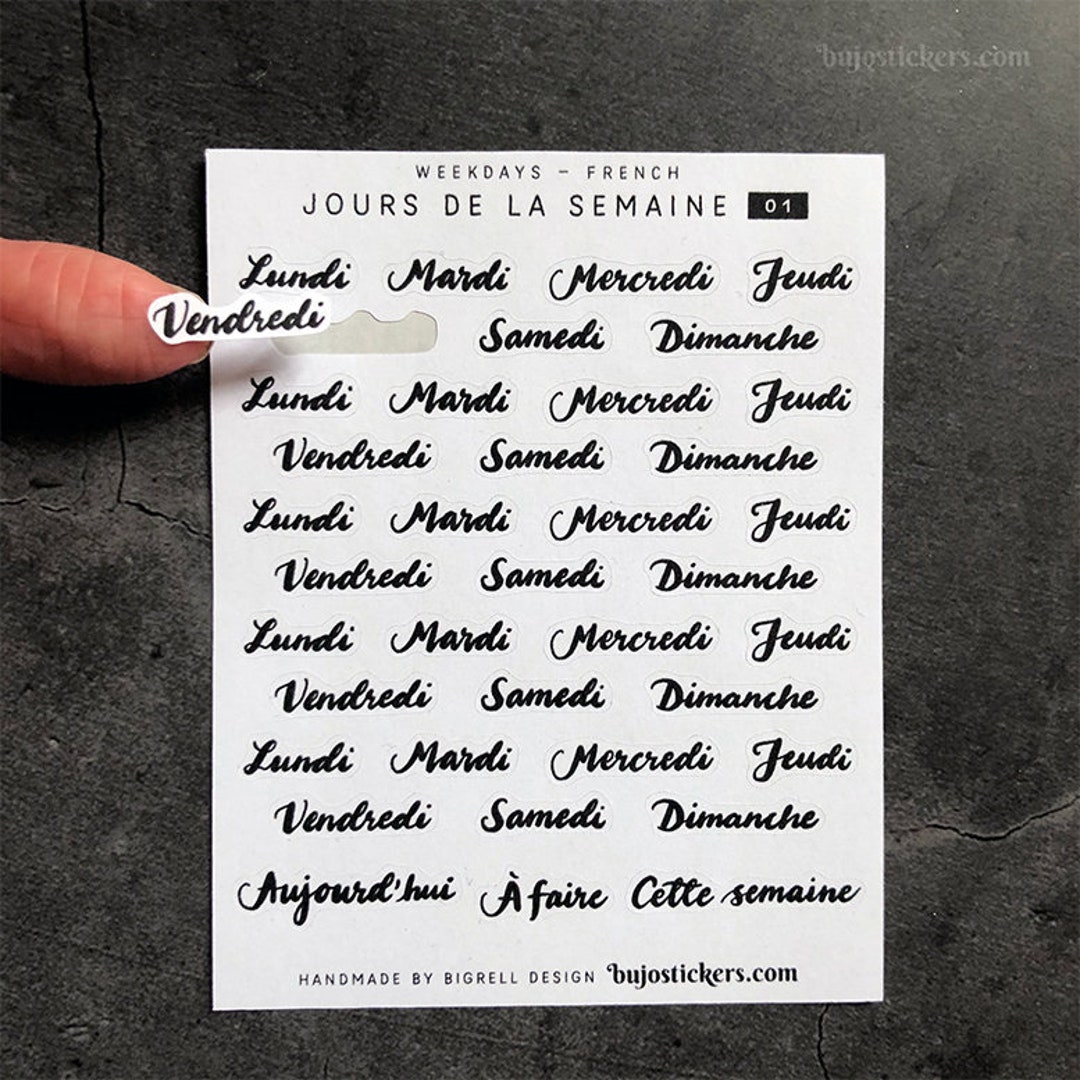 bujostickers.com
WEEKDAYS – FRENCH
JOURS DE LA SEMAINE 01
Lundi Mardi Mercredi Jeudi
Vendredi Samedi Dimanche
Lundi Mardi Mercredi Jeudi
Vendredi Samedi Dimanche
Lundi Mardi Mercredi Jeudi
Vendredi Samedi Dimanche
Lundi Mardi Mercredi Jeudi
Vendredi Samedi Dimanche
Lundi Mardi Mercredi Jeudi
Vendredi Samedi Dimanche
Aujourd'hui À faire Cette semaine
HANDMADE BY BIGRELL DESIGN bujostickers.com